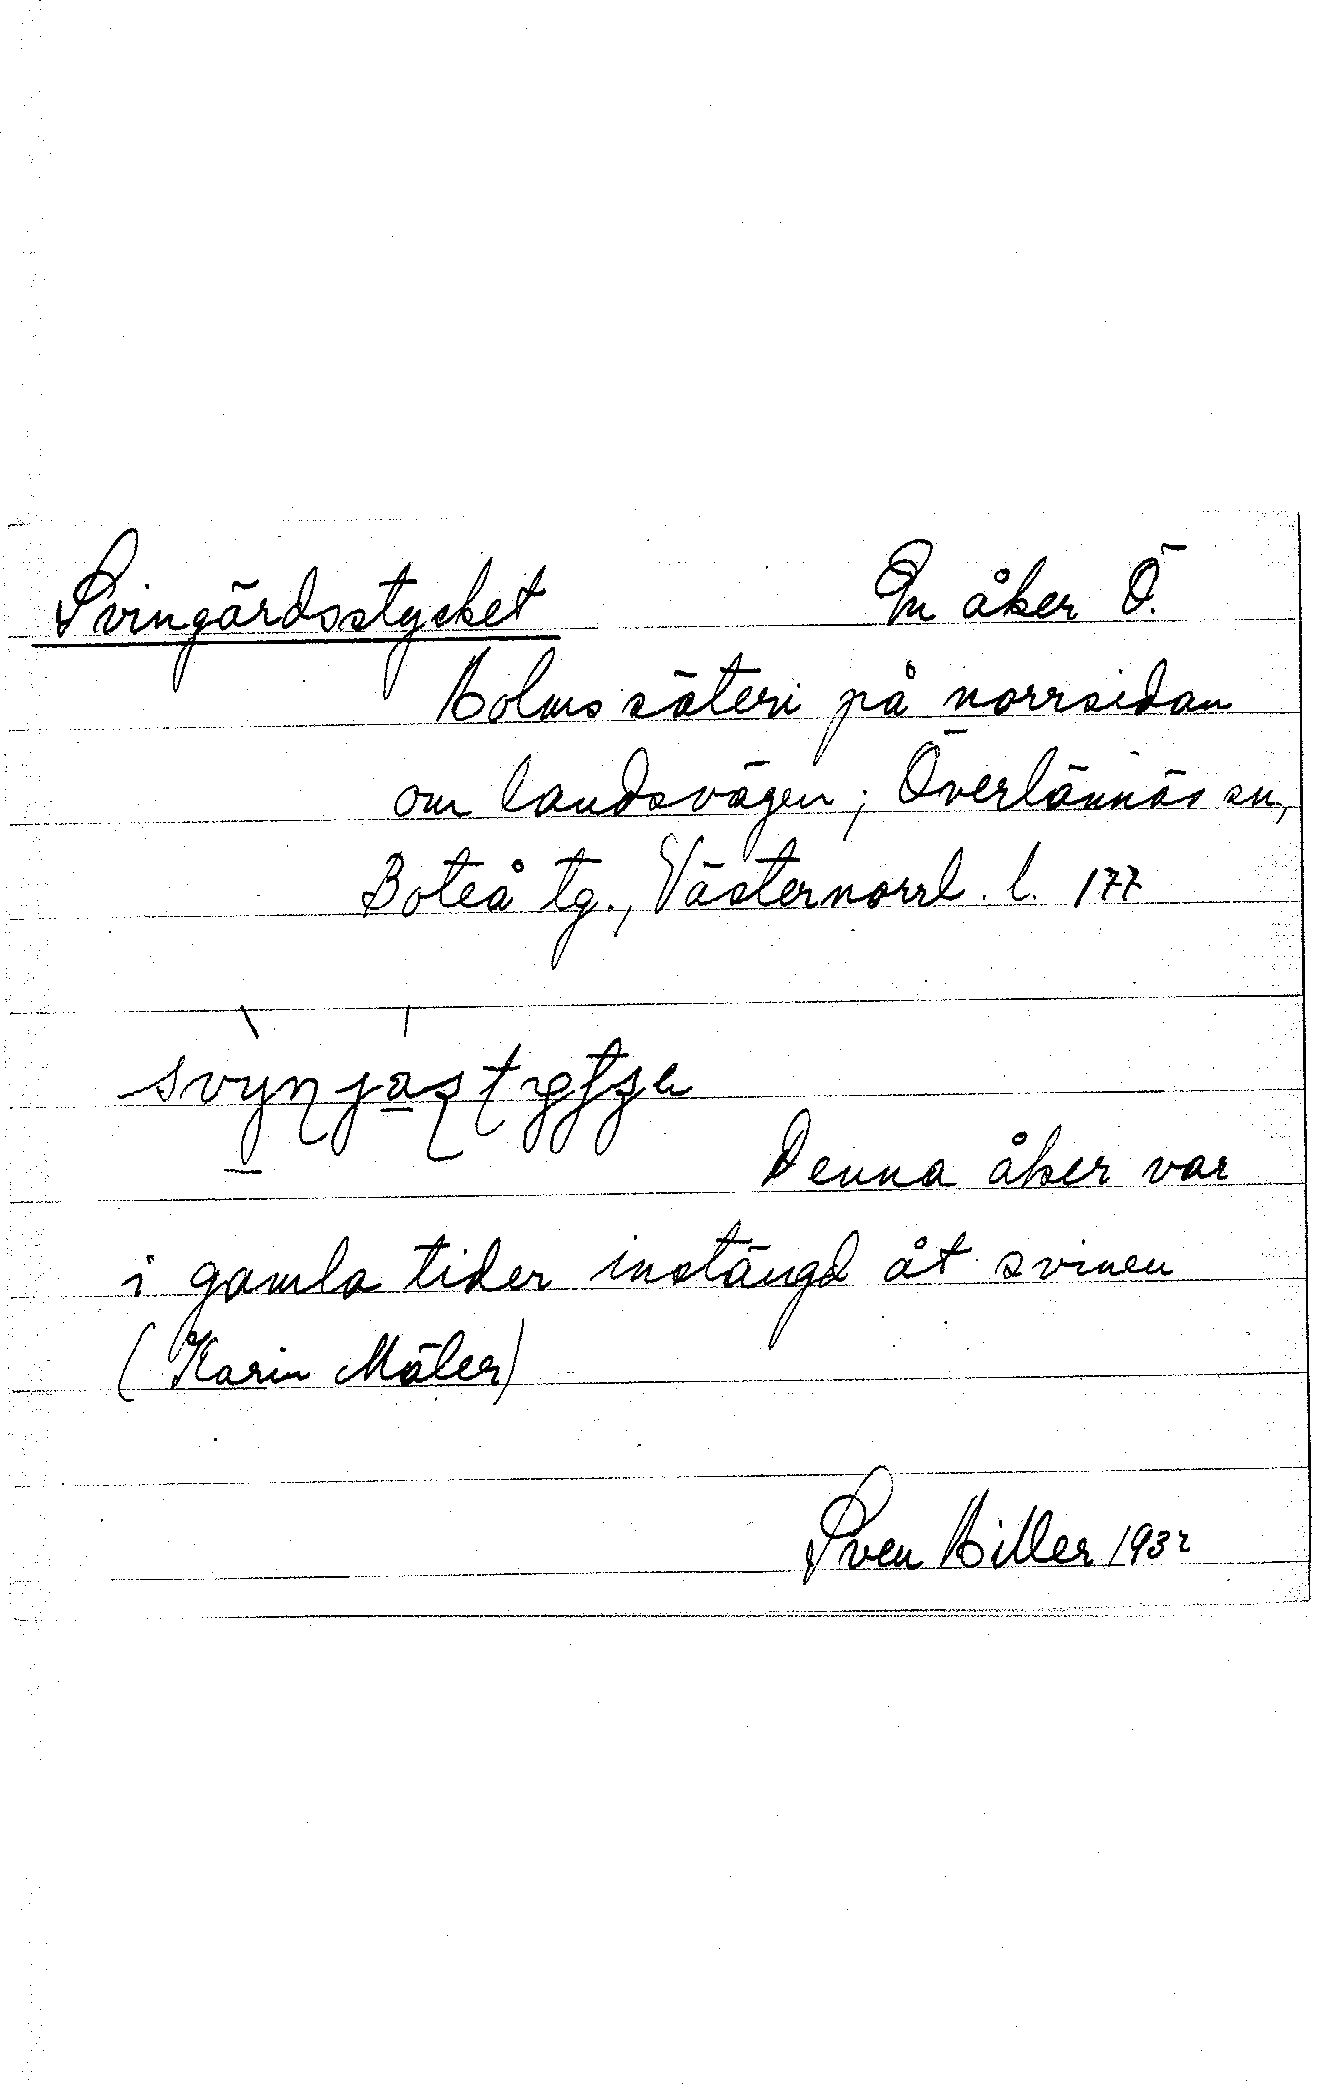 Svingärdsstycket En åker Ö.
Holms säteri på norrsidan
om landsvägen; Överlännäs sn,
Boteå tg., Västernorrl. l. 177
Denna åker var
i gamla tider instängd åt svinen
(Karin Mäler)
Sven Hiller 1932